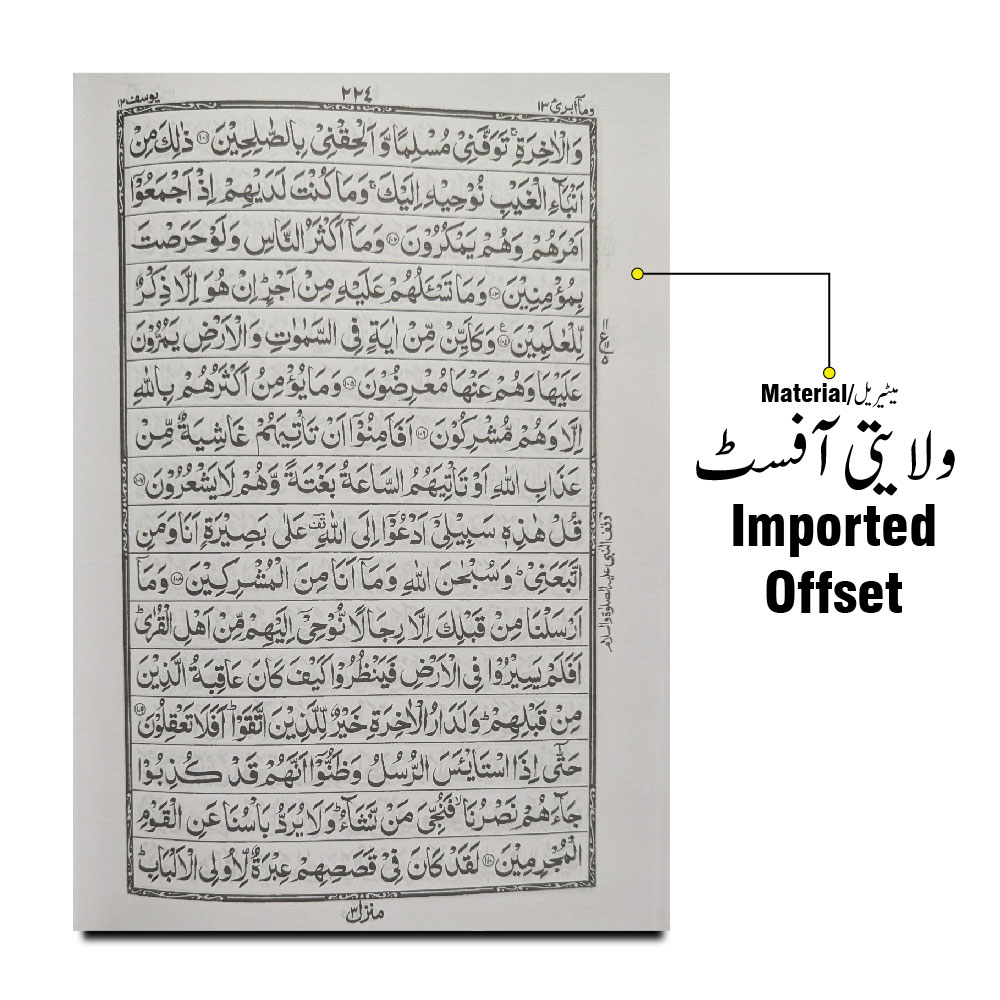 وما ابرئ ١٣
٢٢٤
يوسف ١٢
وَالْاٰخِرَةِ ۚ تَوَفَّنِيْ مُسْلِمًا وَّاَلْحِقْنِيْ بِالصّٰلِحِيْنَ ۝١٠١ ذٰلِكَ مِنْ
اَنْۢبَآءِ الْغَيْبِ نُوْحِيْهِ اِلَيْكَ ۚ وَمَا كُنْتَ لَدَيْهِمْ اِذْ اَجْمَعُوْٓا
اَمْرَهُمْ وَهُمْ يَمْكُرُوْنَ ۝١٠٢ وَمَآ اَكْثَرُ النَّاسِ وَلَوْ حَرَصْتَ
بِمُؤْمِنِيْنَ ۝١٠٣ وَمَا تَسْـَٔلُهُمْ عَلَيْهِ مِنْ اَجْرٍ ۭ اِنْ هُوَ اِلَّا ذِكْرٌ
لِّلْعٰلَمِيْنَ ۝١٠٤ ع وَكَاَيِّنْ مِّنْ اٰيَةٍ فِي السَّمٰوٰتِ وَالْاَرْضِ يَمُرُّوْنَ
عَلَيْهَا وَهُمْ عَنْهَا مُعْرِضُوْنَ ۝١٠٥ وَمَا يُؤْمِنُ اَكْثَرُهُمْ بِاللّٰهِ
اِلَّا وَهُمْ مُّشْرِكُوْنَ ۝١٠٦ اَفَاَمِنُوْٓا اَنْ تَاْتِيَهُمْ غَاشِيَةٌ مِّنْ
عَذَابِ اللّٰهِ اَوْ تَاْتِيَهُمُ السَّاعَةُ بَغْتَةً وَّهُمْ لَا يَشْعُرُوْنَ ۝١٠٧
قُلْ هٰذِهٖ سَبِيْلِيْٓ اَدْعُوْٓا اِلَى اللّٰهِ ۣقف عَلٰى بَصِيْرَةٍ اَنَا وَمَنِ
اتَّبَعَنِيْ ۭ وَسُبْحٰنَ اللّٰهِ وَمَآ اَنَا مِنَ الْمُشْرِكِيْنَ ۝١٠٨ وَمَآ
اَرْسَلْنَا مِنْ قَبْلِكَ اِلَّا رِجَالًا نُّوْحِيْٓ اِلَيْهِمْ مِّنْ اَهْلِ الْقُرٰى ۭ
اَفَلَمْ يَسِيْرُوْا فِي الْاَرْضِ فَيَنْظُرُوْا كَيْفَ كَانَ عَاقِبَةُ الَّذِيْنَ
مِنْ قَبْلِهِمْ ۭ وَلَدَارُ الْاٰخِرَةِ خَيْرٌ لِّلَّذِيْنَ اتَّقَوْا ۭ اَفَلَا تَعْقِلُوْنَ ۝١٠٩
حَتّٰٓى اِذَا اسْتَايْـَٔسَ الرُّسُلُ وَظَنُّوْٓا اَنَّهُمْ قَدْ كُذِبُوْا
جَآءَهُمْ نَصْرُنَا ۙ فَنُجِّيَ مَنْ نَّشَآءُ ۭ وَلَا يُرَدُّ بَاْسُنَا عَنِ الْقَوْمِ
الْمُجْرِمِيْنَ ۝١١٠ لَقَدْ كَانَ فِيْ قَصَصِهِمْ عِبْرَةٌ لِّاُولِي الْاَلْبَابِ ۭ
وقف النبى عليه الصلوة والسلام
منزل ٣
Material/میٹیریل
ولایتی آفسٹ
Imported
Offset